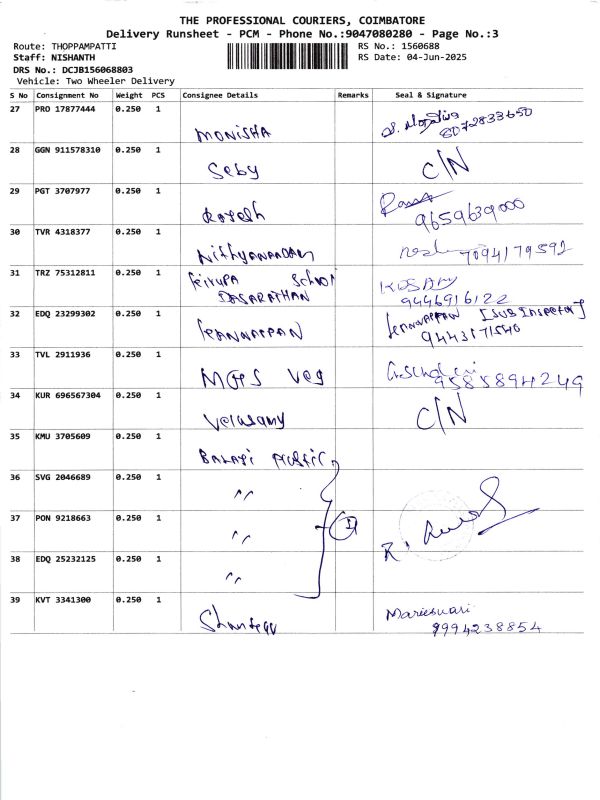 THE PROFESSIONAL COURIERS, COIMBATORE
Delivery Runsheet - PCM - Phone No.:9047080280 - Page No.:3
Route: THOPPAMPATTI
RS No.: 1560688
Staff: NISHANTH
RS Date: 04-Jun-2025
DRS No.: DCJB156068803
Vehicle: Two Wheeler Delivery
S No Consignment No Weight PCS Consignee Details Remarks Seal & Signature
27 PRO 17877444 0.250 1
MONISHA
8072833650
28 GGN 911578310 0.250 1
Seby C/N
29 PGT 3707977 0.250 1
Rajesh
9659639000
30 TVR 4318377 0.250 1
Nithyanandam 7094179592
31 TRZ 75312811 0.250 1
School
DASARATHAN
9446916122
32 EDQ 23299302 0.250 1
[SUB INSPECTOR]
9443171540
33 TVL 2911936 0.250 1
MGS Veg
9585894249
34 KUR 696567304 0.250 1
Velusamy C/N
35 KMU 3705609 0.250 1
BALAJI
36 SVG 2046689 0.250 1
"
37 PON 9218663 0.250 1
"
38 EDQ 25232125 0.250 1
"
R.
39 KVT 3341300 0.250 1
Marieswari
9994238854